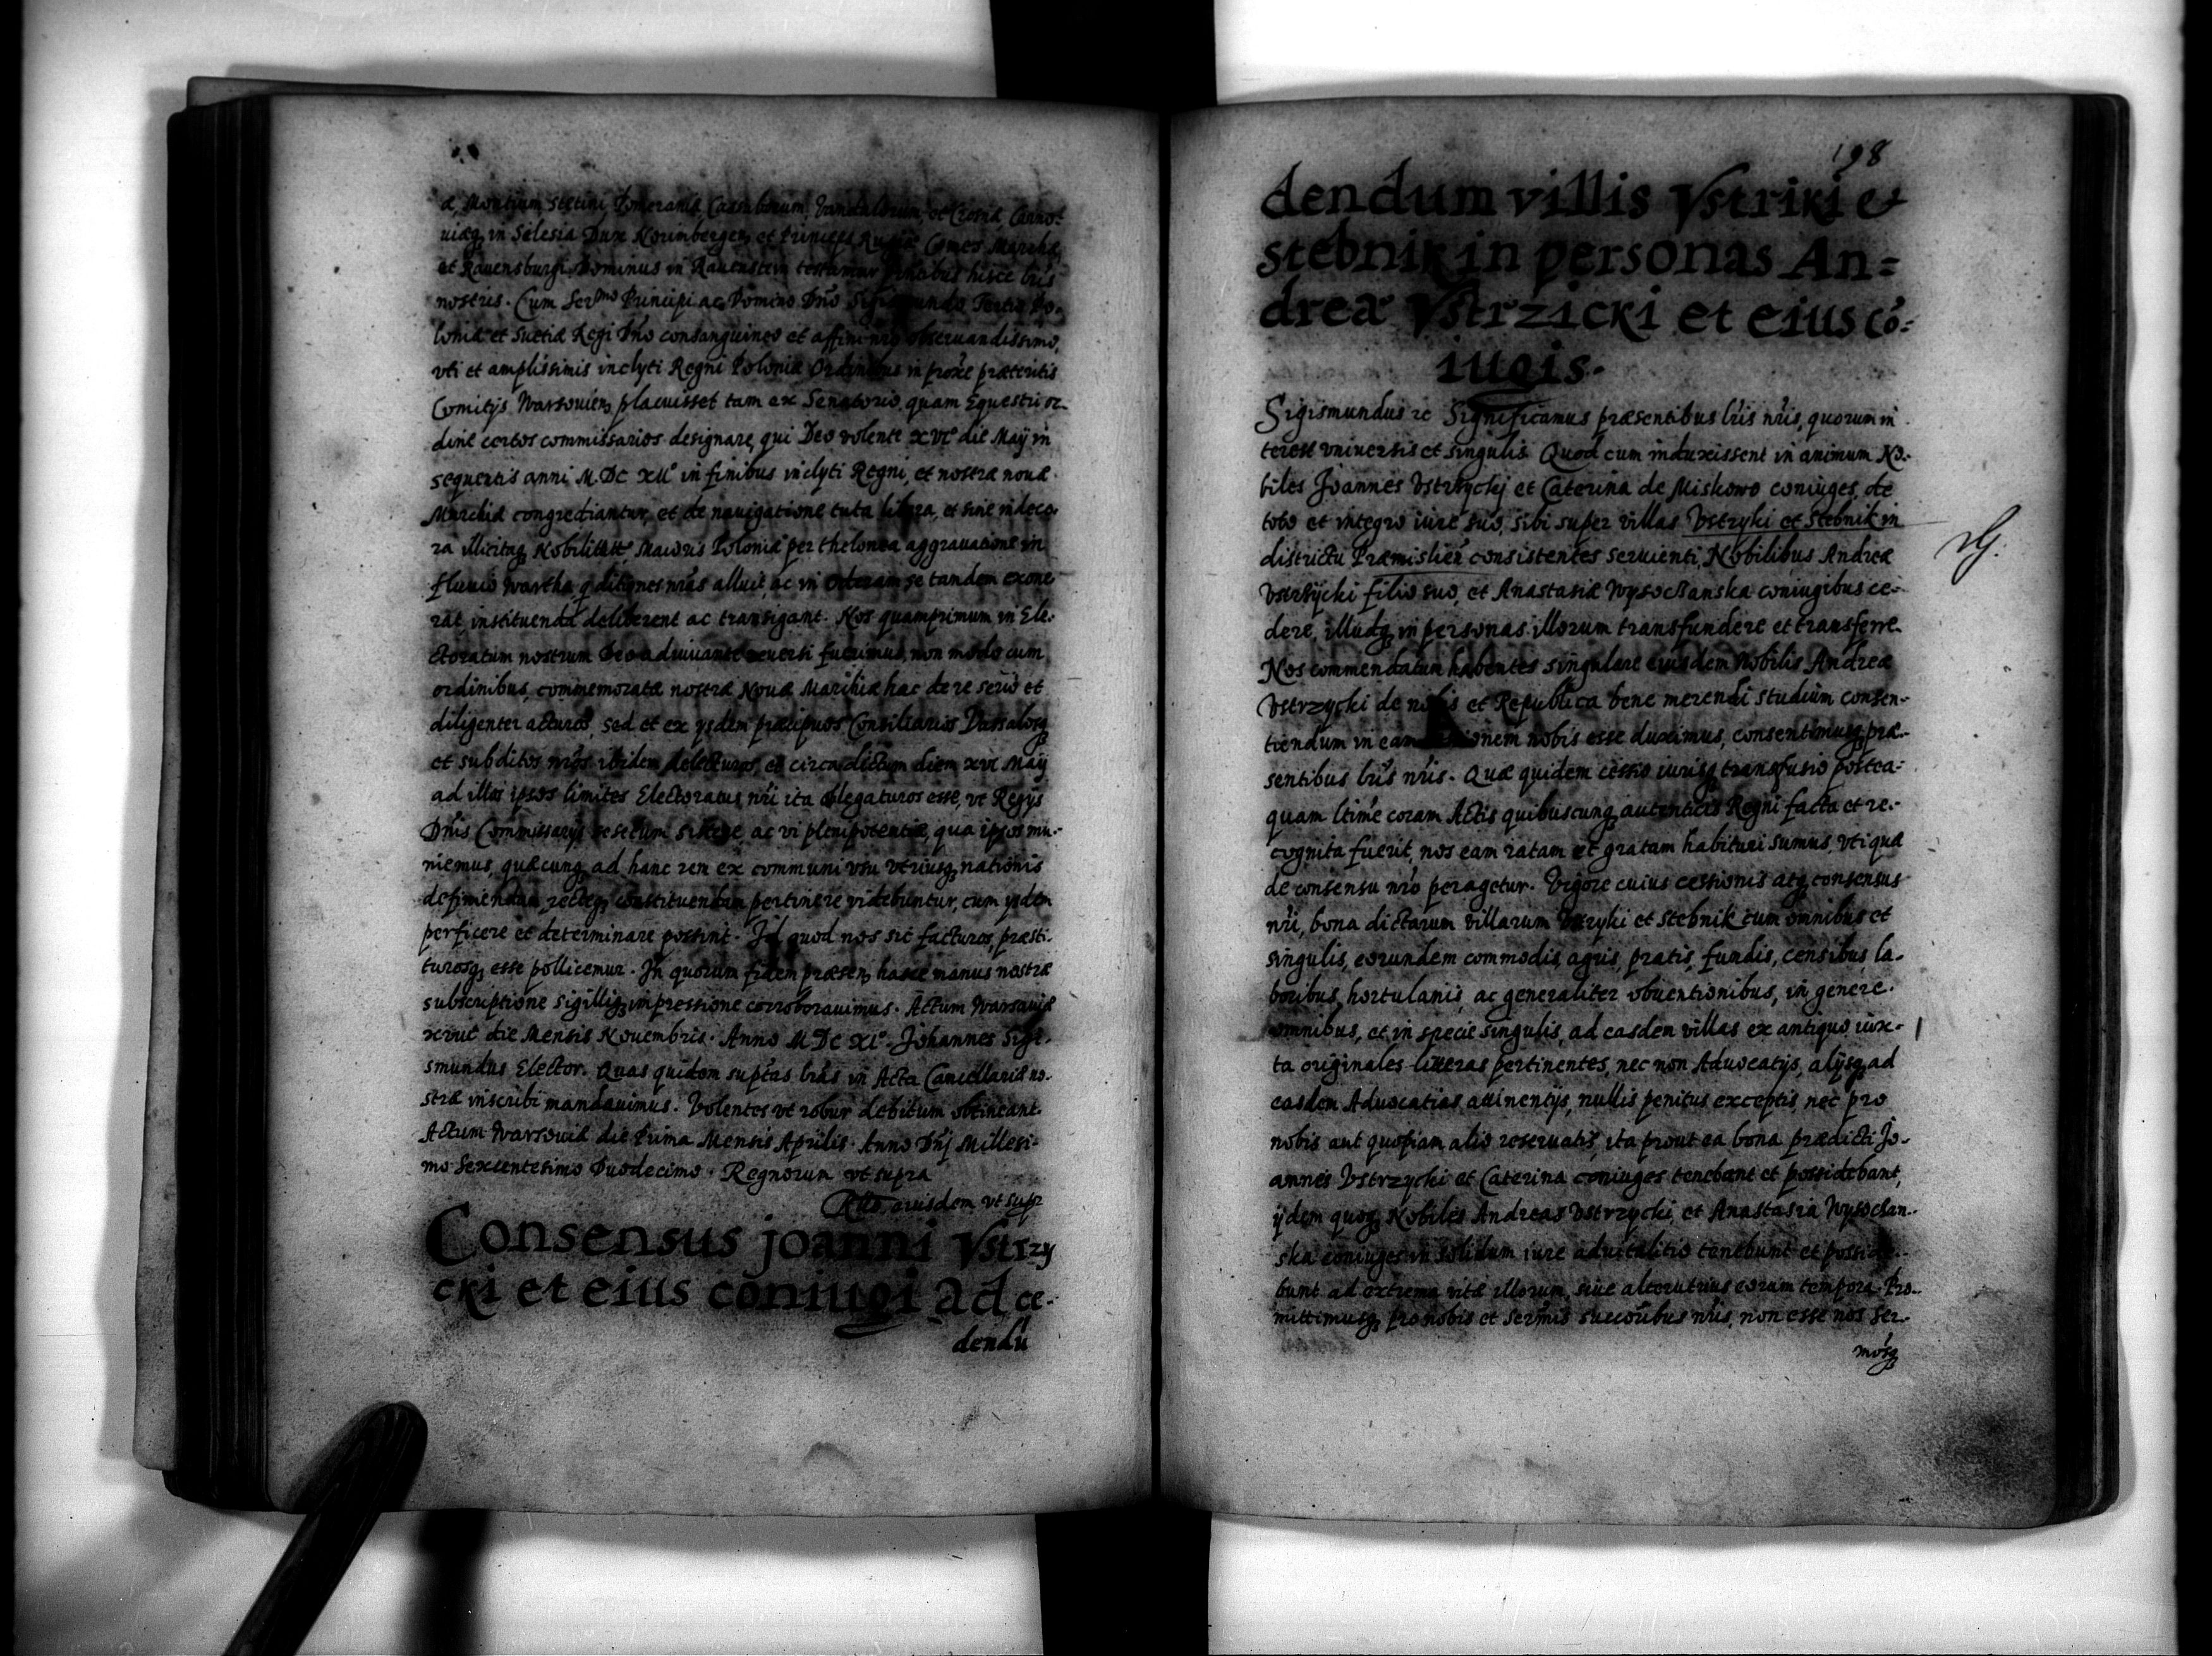 æ, Montium Stetini, Pomeraniæ, Cassuborum, Vandalorum, et Crosnæ, Carno-
uiæq₃ in Silesia Dux Nourinbergeñ et Princeps Rugiæ Comes Marchiæ
et Rauensburgi, Dominus in Rauenstein testamur pñtibus hisce lr̃is
nostris. Cum Serᵐᵒ Principi ac Domino Dño Sigismundo Tertio Po-
loniæ et Suetiæ Regi Dño consanguineo et affini nr̃o obseruandissimo,
vti et amplissimis inclyti Regni Poloniæ Ordinibus in proxe præteritis
Comitijs Warsouieñ placuisset tam ex Senatorio, quam Equestri or-
dine certos commissarios designare, qui Deo volente XVIᵒ die Maÿ in
sequentis anni M.DC XIIᵒ in finibus inclyti Regni, et nostræ nouæ
Marchiæ congrediantur, et de nauigatione tuta libera, et sine indeco-
ra illicitaq₃ Nobilitatis Maioris Poloniæ per thelonea aggrauatione in
fluuio Wartha, q̃ ditiones nr̃as alluit, ac in Oderam se tandem exone-
rat, instituenda deliberent ac transigant. Nos quamprimum in Ele-
ctoratum nostrum Deo adiuuante reuersi fuerimus, non modo cum
ordinibus, commemoratæ nostræ Nouæ Marchiæ hac de re serio et
diligenter acturos, sed et ex ijsdem præcipuos Consiliarios Vassalosq₃
et subditos nr̃os ibidem delecturos, et circa dictum diem XVI Maÿ
ad illos ipsos limites Electoratus nr̃i ita ablegaturos esse, vt Regijs
Dñis Commissarijs sese sistere, ac vi plenipotentiæ, qua ipsos mu-
niemus, quæcunq₃ ad hanc rem ex communi vsu vtriusq₃ nationis
definiendam, recteq₃ constituendam pertinere videbuntur, cum ijsdem
perficere et determinare possint. Id quod nos sic facturos, præsti-
turosq₃ esse pollicemur. In quorum fidem præseñ hasce manus nostræ
subscriptione sigilliq₃ impressione corroborauimus. Actum Warsauiæ
XVIII die Mensis Nouembris. Anno M DC XIᵒ. Johannes Sigi-
smundus Elector. Quas quidem supr̃tas lr̃as in Acta Cancellariæ no-
stræ inscribi mandauimus. Volentes vt robur debitum obtineant.
Actum Warsouiæ die Prima Mensis Aprilis. Anno Dñj Millesi-
mo Sexcentesimo Duodecimo. Regnorum vt supra
eiusdem vt supr
Consensus joanni Vstrzy
cki et eius coniugi ad ce-
dendũ
198
dendum villis Vstriki &
stebnik in personas An=
dreæ Vstrzicki et eius cõ-
iugis.
Sigismundus ⁊c Significamus præsentibus lr̃is nr̃is, quorum in
terest vniuersis et singulis. Quod cum induxissent in animum No-
biles Joannes Vstrzyckj et Caterina de Miskowo coniuges, de
toto et integro iure suo, sibi super villas Vstryki et Stebnik in
districtu Præmislieñ consistentes seruienti, Nobilibus Andreæ
Vstrzÿcki filio suo, et Anastasiæ Wysoczanska coniugibus ce-
dere, illudq₃ in personas illorum transfundere et transferre.
Nos commendatum habentes singulare eiusdem Nobilis Andreæ
Vstrzycki de nobis et Republica bene merendi studium consen-
tiendum in eam cessionem nobis esse duximus, consentimusq₃ præ-
sentibus lr̃is nr̃is. Quæ quidem cessio iurisq₃ transfusio postea-
quam ltime coram Actis quibuscunq₃ autenticis Regni facta et re-
cognita fuerit, nos eam ratam et gratam habituri sumus, vti quæ
de consensu nr̃o peragetur. Vigore cuius cessionis atq₃ consensus
nr̃i, bona dictarum villarum Vstryki et Stebnik cum omnibus et
singulis, eorundem commodis, agris, pratis, fundis, censibus, la-
boribus, hortulanis, ac generaliter obuentionibus, in genere
omnibus, et in specie singulis, ad easdem villas ex antiquo iux-
ta originales litteras pertinentes, nec non Aduocatijs, alijsq₃ ad
easdem Aduocatias attinentijs, nullis penitus exceptis, nec pro
nobis aut quopiam alio reseruatis, ita prout ea bona prædicti Jo-
annes Vstrzycki et Caterina coniuges tenebant et possidebant,
ijdem quoq₃ Nobiles Andreas Vstrzycki, et Anastasia Wysoczan-
ska coniuges in solidum iure aduitalitio tenebunt et posside-
bunt ad extrema vitæ illorum, siue alterutrius eorum tempora. Pro-
mittimusq₃ pro nobis et Serm̃is succ̃oribus nr̃is, non esse nos Ser-
mõsq₃